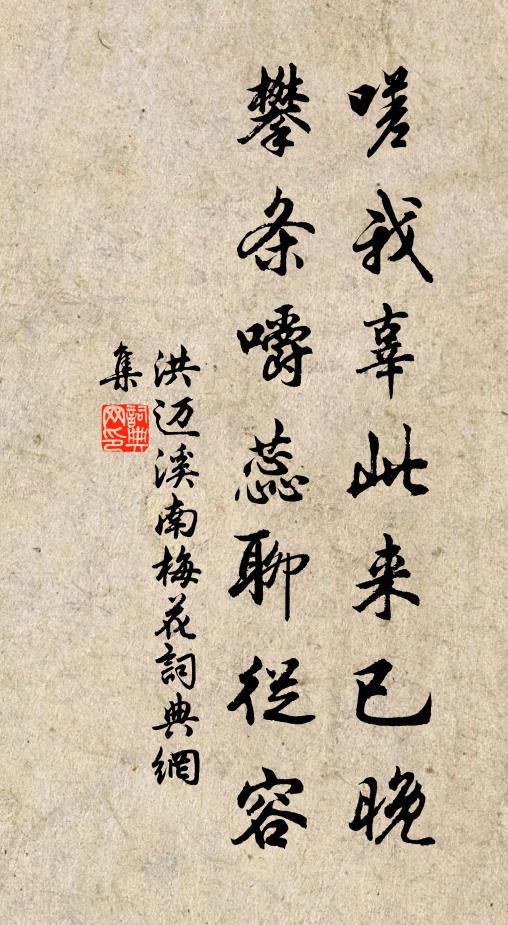 嗟我辜此来已晚
攀条嚼蕊聊從容
洪迈溪南梅花詞典網
集
詞典网印